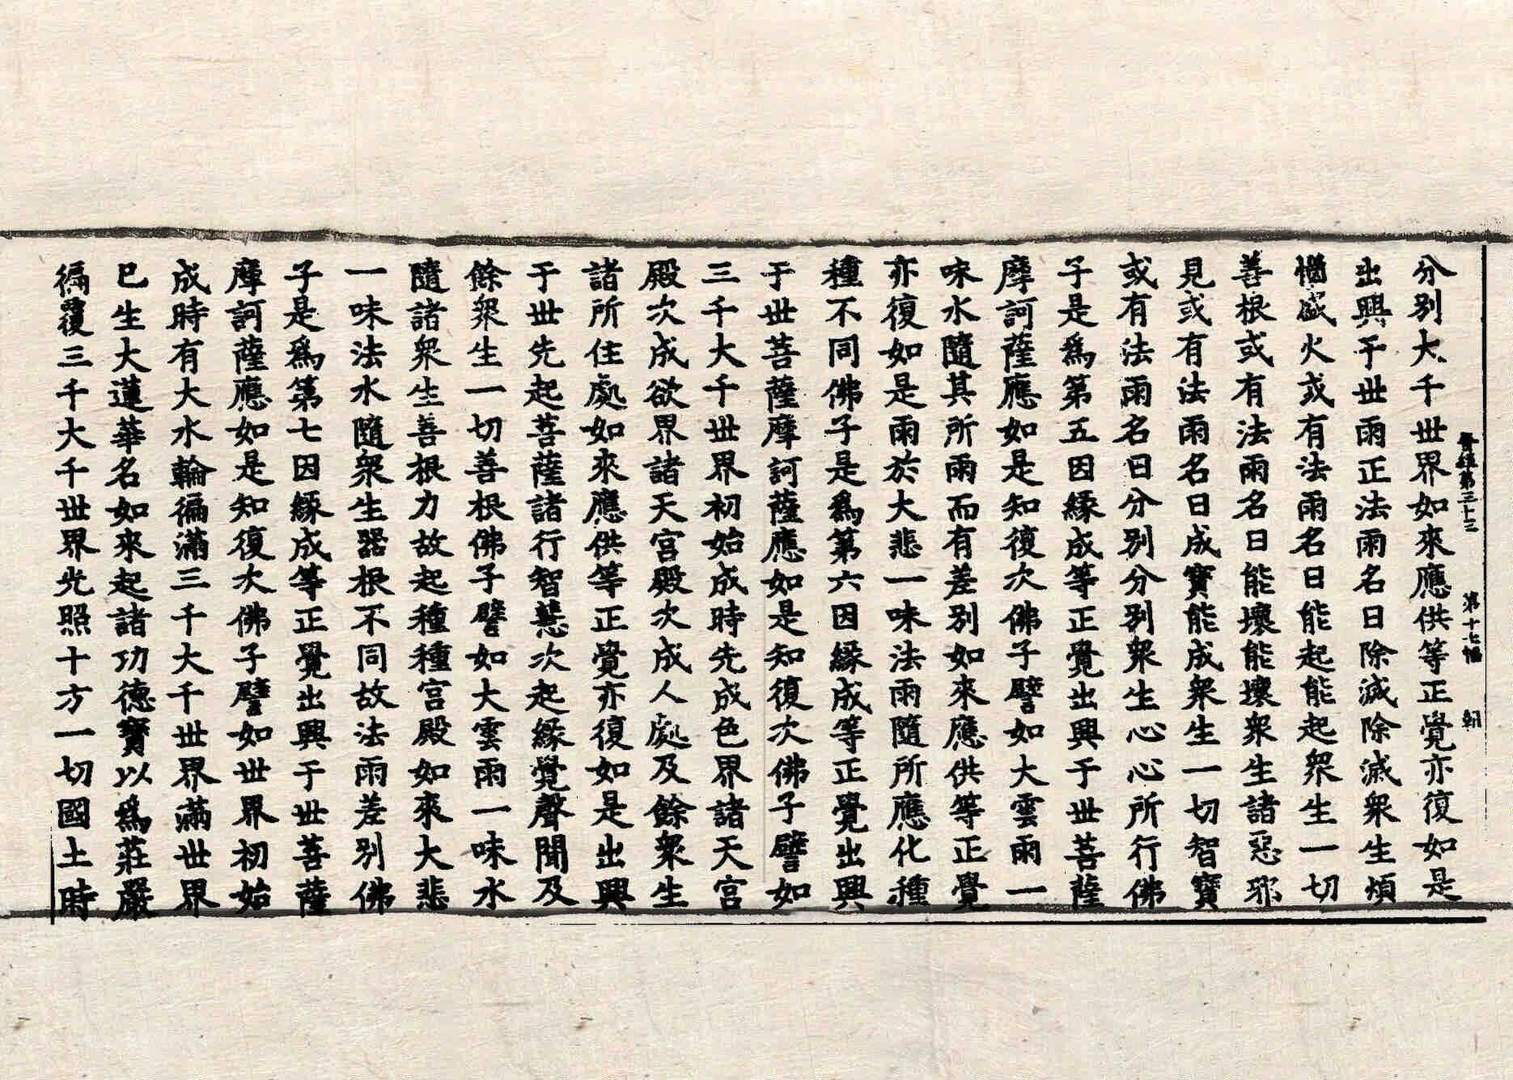 晉經第三十三 第十七幅 朝
分别大千世界如來應供等正覺亦復如是
出興于世雨正法雨名曰除滅除滅衆生煩
惱盛火或有法雨名曰能起能起衆生一切
善根或有法雨名曰能壞能壞衆生諸惡邪
見或有法雨名曰成寶能成衆生一切智寶
或有法雨名曰分别分别衆生心心所行佛
子是爲第五因緣成等正覺出興于世菩薩
摩訶薩應如是知復次佛子譬如大雲雨一
味水隨其所雨而有差别如來應供等正覺
亦復如是雨於大悲一味法雨隨所應化種
種不同佛子是爲第六因緣成等正覺出興
于世菩薩摩訶薩應如是知復次佛子譬如
三千大千世界初始成時先成色界諸天宫
殿次成欲界諸天宫殿次成人處及餘衆生
諸所住處如來應供等正覺亦復如是出興
于世先起菩薩諸行智慧次起緣覺聲聞及
餘衆生一切善根佛子譬如大雲雨一味水
隨諸衆生善根力故起種種宫殿如來大悲
一味法水隨衆生器根不同故法雨差别佛
子是爲第七因緣成等正覺出興于世菩薩
摩訶薩應如是知復次佛子譬如世界初始
成時有大水輪徧滿三千大千世界滿世界
已生大蓮華名如來起諸功德寶以爲莊嚴
徧覆三千大千世界光照十方一切國土時